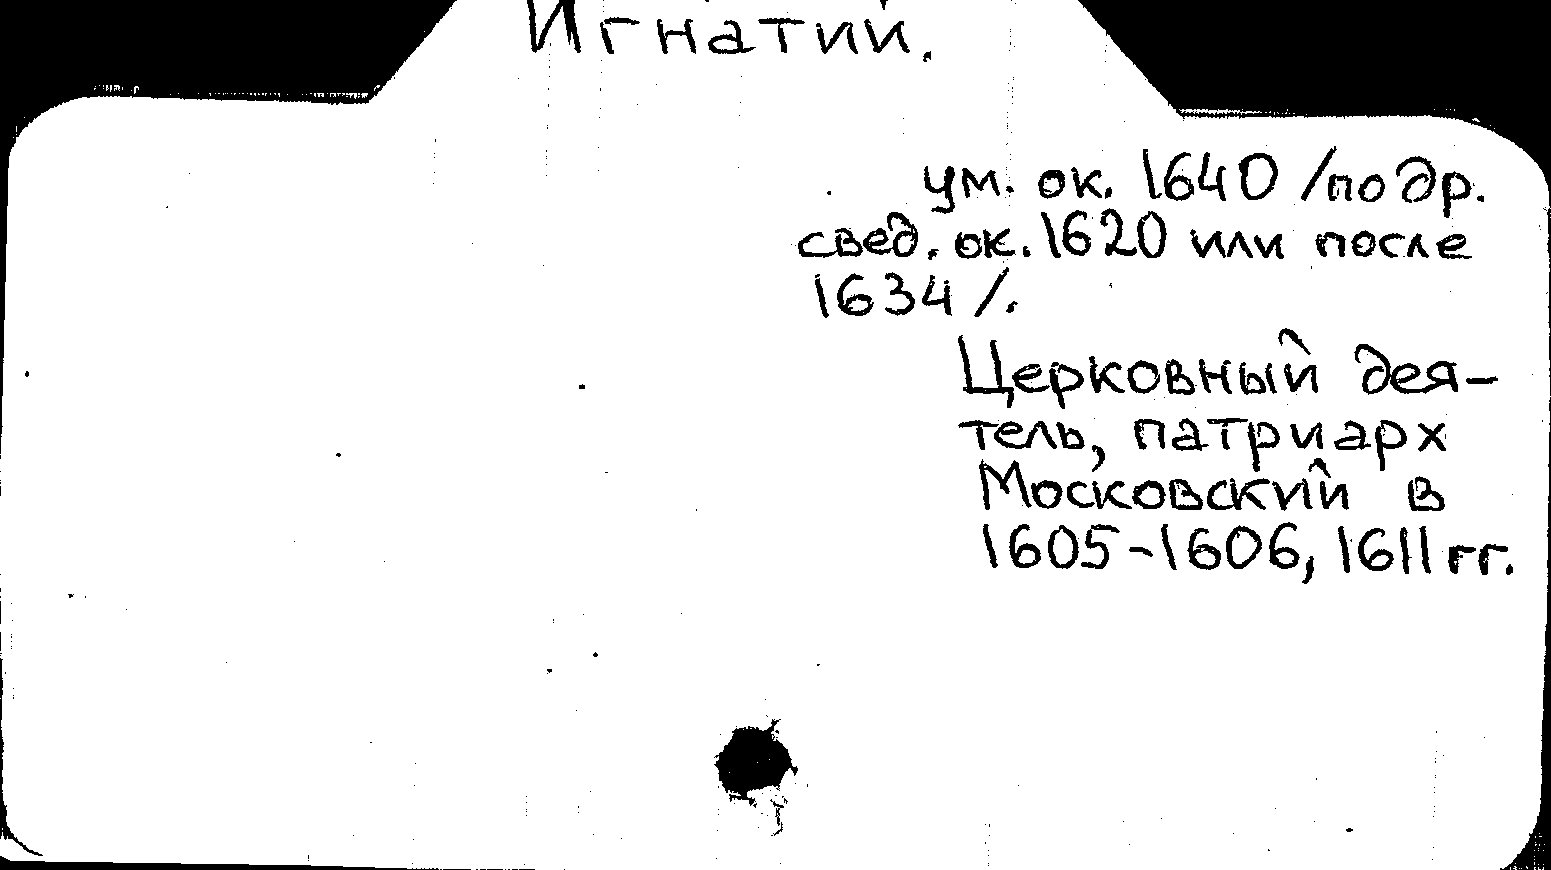 Игнатий.
ум. ок. 1640 /по др.
свед. ок. 1620 или после
1634/.
Церковный дея-
тель, патриарх
Московский в
1605-1606, 1611 гг.